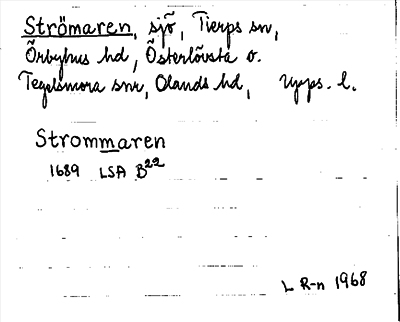 Strömaren, sjö, Tierps sn,
Örbyhus hd, Österlövsta o.
Tegelsmora snr, Olands hd, Upps. l.
Strommaren
1689 LSA B22
L R-n 1968